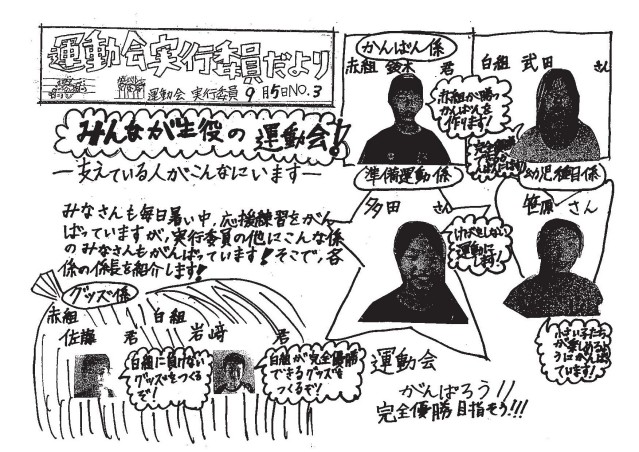 運動会実行委員だより
運動会 実行委員 9月5日NO.3
みんなが主役の運動会!
―支えている人がこんなにいます―
みなさんも毎日暑い中、応援練習をがん
ばっていますが、実行委員の他にこんな係
のみなさんもがんばっています!そこで、各
係の係長を紹介します!
かんばん係
赤組 鈴木 君
赤組が勝つ
かんばんを
作ります!
白組 武田 さん
完全優勝
準備運動係
多田 さん
けがをしない
運動に
します!
幼児種目係
笹原 さん
小さい子たち
が楽しめるよ
うにがんば
ています!
グッズ係
赤組
佐藤 君
白組に負けない
グッズをつくる
ぞ!
白組
岩崎 君
白組が完全優勝
できるグッズを
つくるぞ!
運動会
がんばろう!!
完全優勝目指そう!!!